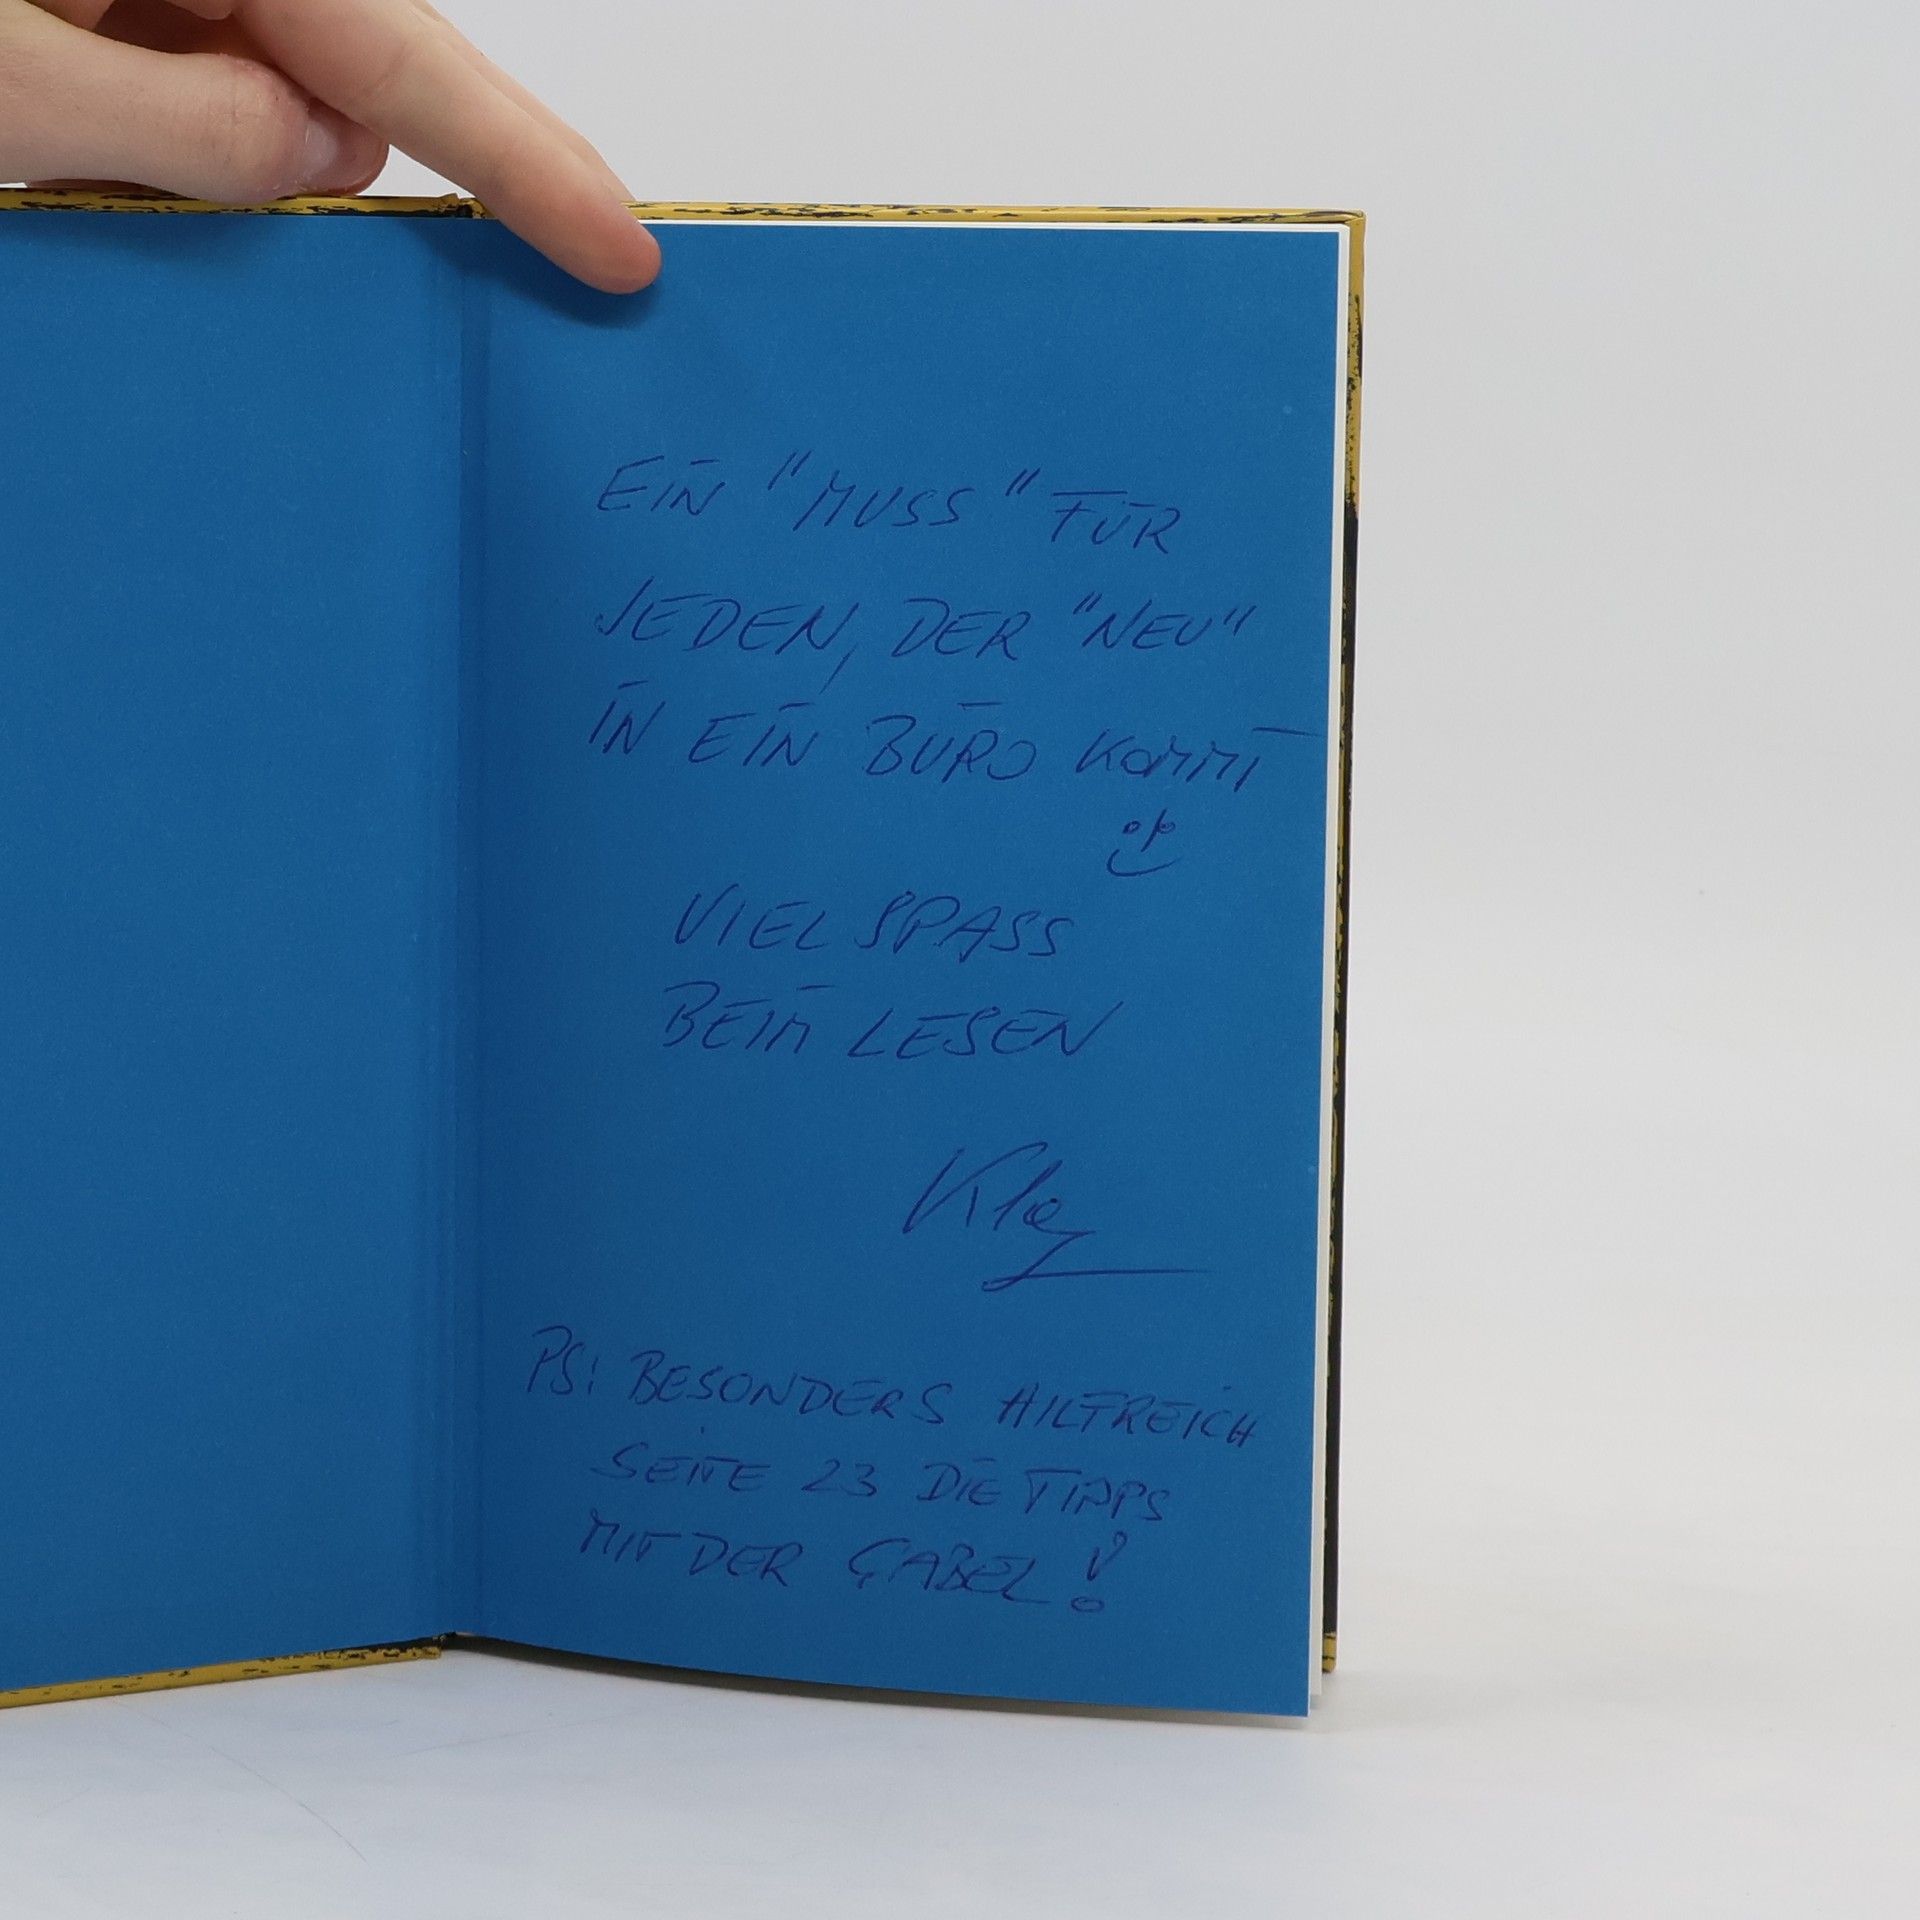 EIN "MUSS" FÜR
JEDEN, DER "NEU"
IN EIN BÜRO KOMMT
VIEL SPASS
BEIM LESEN
PS: BESONDERS HILFREICH
SEITE 23 DIE TIPPS
MIT DER GABEL!